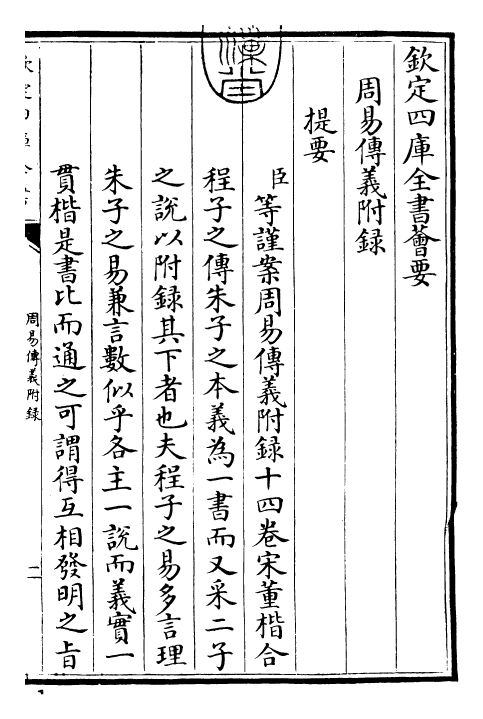 欽定四庫全書薈要
周易傳義附録
提要
臣等謹案周易傳義附録十四卷宋董楷合
程子之傳朱子之本義為一書而又采二子
之說以附録其下者也夫程子之易多言理
朱子之易兼言數似乎各主一說而義實一
貫楷是書比而通之可謂得互相發明之旨
周易傳義附録
二